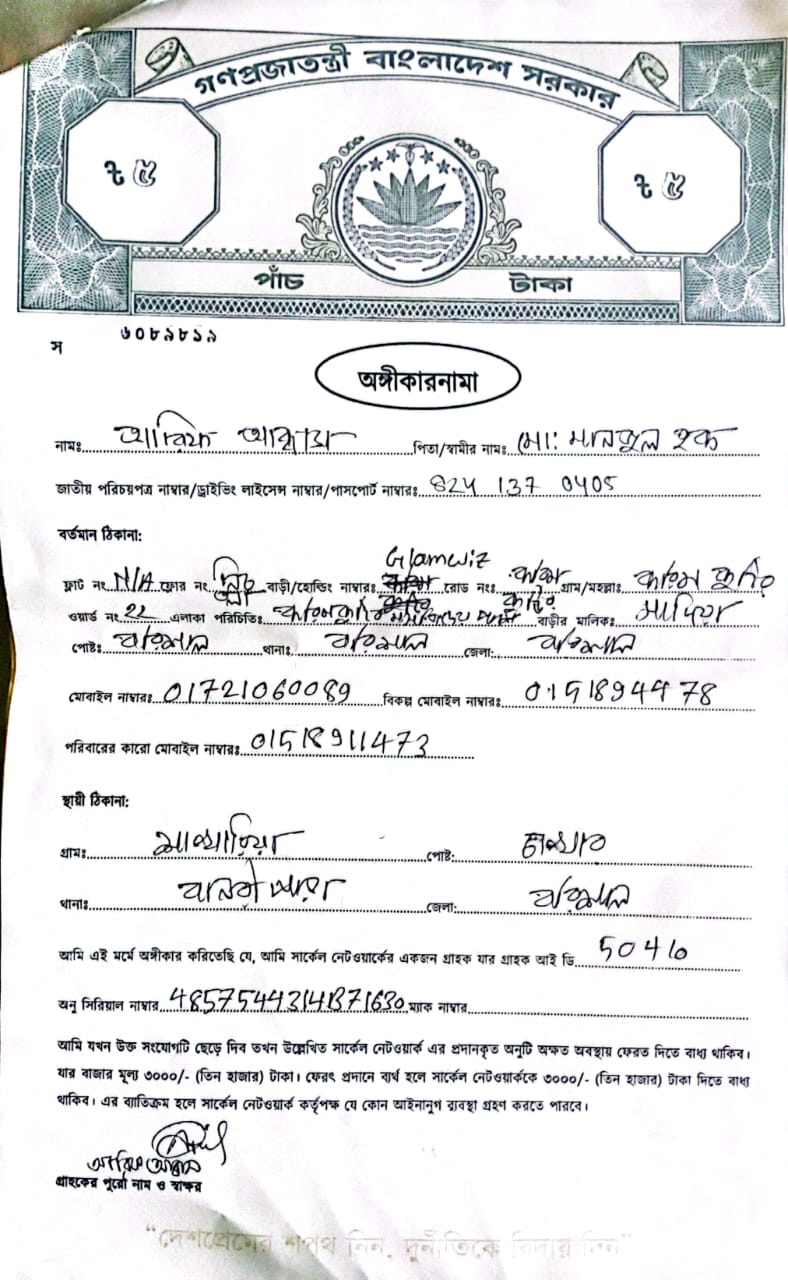 গণপ্রজাতন্ত্রী বাংলাদেশ সরকার
৳ ৫ ৳ ৫
পাঁচ টাকা
স ৬০৮৯৮১৯
অঙ্গীকারনামা
নামঃ আরিফ পিতা/স্বামীর নামঃ মো: মানজুল হক
জাতীয় পরিচয়পত্র নাম্বার/ড্রাইভিং লাইসেন্স নাম্বার/পাসপোর্ট নাম্বারঃ 824 137 0405
বর্তমান ঠিকানা:
Glamwiz
ফ্লাট নং N/A ফ্লোর নং নিচ তলা বাড়ী/হোল্ডিং নাম্বারঃ রোড নংঃ গ্রাম/মহল্লাঃ
ওয়ার্ড নং 22 এলাকা পরিচিতিঃ বাড়ীর মালিকঃ সাদিয়া
পোষ্টঃ বরিশাল থানাঃ বরিশাল জেলা: বরিশাল
মোবাইল নাম্বারঃ 01721060089 বিকল্প মোবাইল নাম্বারঃ
পরিবারের কারো মোবাইল নাম্বারঃ 01518911473
স্থায়ী ঠিকানা:
গ্রামঃ পোষ্ট:
থানাঃ জেলা: বরিশাল
আমি এই মর্মে অঙ্গীকার করিতেছি যে, আমি সার্কেল নেটওয়ার্কের একজন গ্রাহক যার গ্রাহক আই ডি
অনু সিরিয়াল নাম্বার ম্যাক নাম্বার
আমি যখন উক্ত সংযোগটি ছেড়ে দিব তখন উল্লেখিত সার্কেল নেটওয়ার্ক এর প্রদানকৃত অনুটি অক্ষত অবস্থায় ফেরত দিতে বাধ্য থাকিব।
যার বাজার মূল্য ৩০০০/- (তিন হাজার) টাকা। ফেরৎ প্রদানে ব্যর্থ হলে সার্কেল নেটওয়ার্ককে ৩০০০/- (তিন হাজার) টাকা দিতে বাধ্য
থাকিব। এর ব্যতিক্রম হলে সার্কেল নেটওয়ার্ক কর্তৃপক্ষ যে কোন আইনানুগ ব্যবস্থা গ্রহণ করতে পারবে।
গ্রাহকের পুরো নাম ও স্বাক্ষর
"দেশপ্রেমের শপথ নিন, দুর্নীতিকে বিদায় দিন"